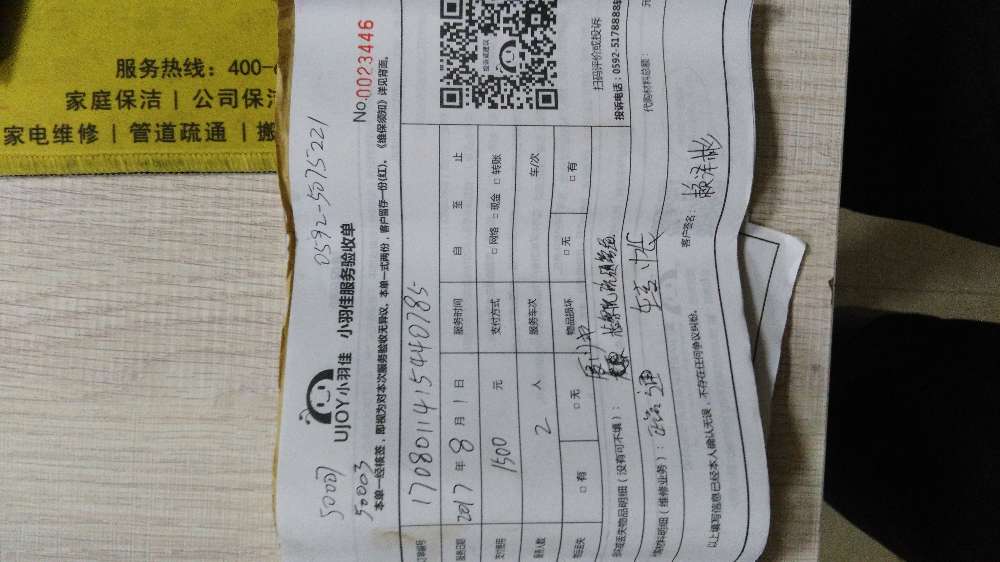 服务热线：400-
家庭保洁 | 公司保洁
家电维修 | 管道疏通 | 搬
5000吨
50003
0592-5075221
UJOY小羽佳 小羽佳服务验收单
No.0023446
本单一经核签，即视为对本次服务验收无异议。本单一式两份，客户留存一份(红)。《维保须知》详见背面。
订单编号 170801141544078​5
服务日期 2017 年 8 月 1 日 服务时间 自 至 止
支付费用 1500 元 支付方式 □ 网络 □ 现金 □ 转账
服务人数 2 人 服务车次 车/次
物品丢失 □ 有 □ 无 物品损坏 □ 无 □ 有
损坏或丢失物品明细（没有可不填）：
代购材料明细（维修业务）：
代购材料总额： 元
以上填写信息已经本人确认无误，不存在任何争议纠纷。
客户签名： 赖泽彬
投诉或建议
扫码评价或投诉
投诉电话：0592-5178888